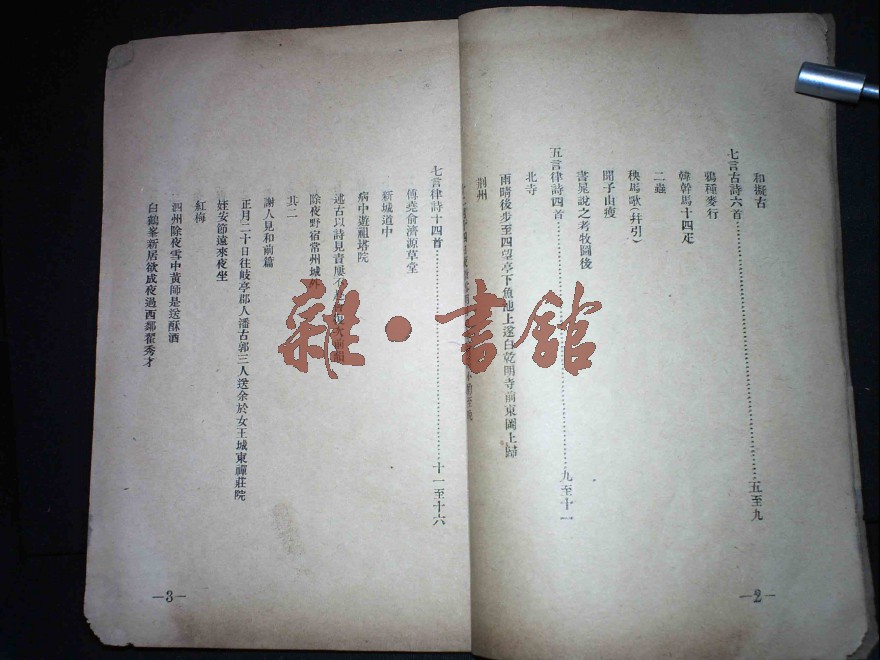 和擬古
七言古詩六首……五至九
鴉種麥行
韓幹馬十四疋
二蟲
秧馬歌(幷引)
聞子由瘦
書晁說之考牧圖後
五言律詩四首……九至十一
北寺
雨晴後步至四望亭下魚池上遂自乾明寺前東岡上歸
荆州
七言律詩十四首……十一至十六
傅堯俞濟源草堂
新城道中
病中遊祖塔院
述古以詩見責屢不
除夜野宿常州城外
其二
謝人見和前篇
正月二十日往岐亭郡人潘古郭三人送余於女王城東禪莊院
姪安節遠來夜坐
紅梅
泗州除夜雪中黃師是送酥酒
白鶴峯新居欲成夜過西鄰翟秀才
—2—
—3—
雜·書館